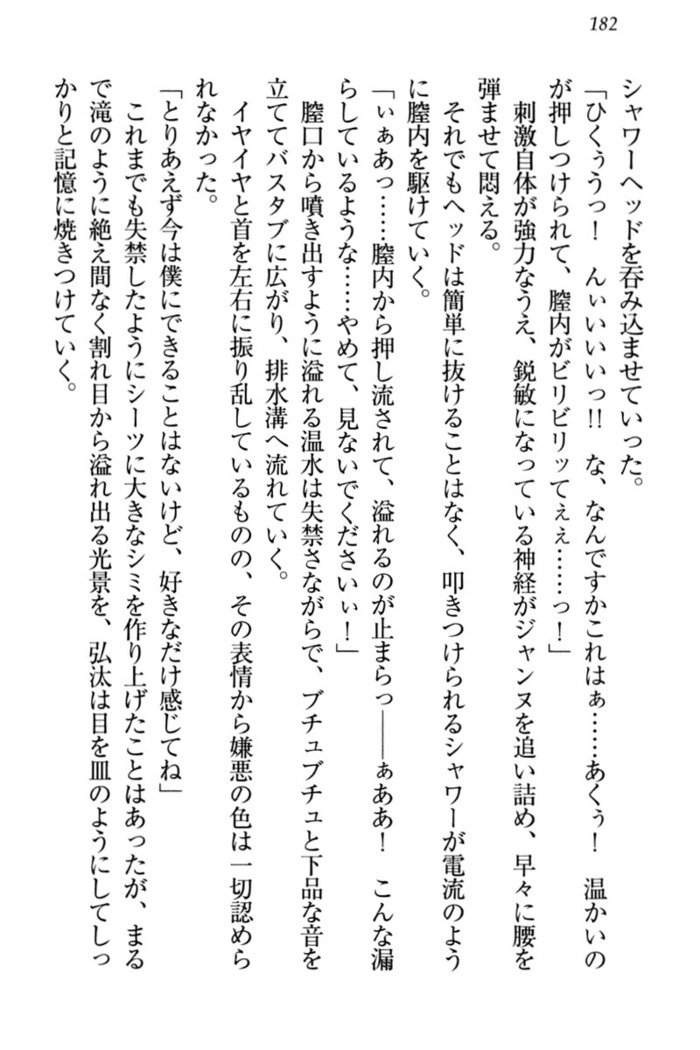 182
シャワーヘッドを呑み込ませていった。
「ひくぅうっ！　んぃいいいっ!!　な、なんですかこれはぁ……あくぅ！　温かいの
が押しつけられて、膣内がビリビリッてぇぇ……っ！」
　刺激自体が強力なうえ、鋭敏になっている神経がジャンヌを追い詰め、早々に腰を
弾ませて悶える。
　それでもヘッドは簡単に抜けることはなく、叩きつけられるシャワーが電流のよう
に膣内を駆けていく。
「ぃぁあっ……膣内から押し流されて、溢れるのが止まらっ――ぁああ！　こんな漏
らしているような……やめて、見ないでくださいぃ！」
　膣口から噴き出すように溢れる温水は失禁さながらで、ブチュブチュと下品な音を
立ててバスタブに広がり、排水溝へ流れていく。
　イヤイヤと首を左右に振り乱しているものの、その表情から嫌悪の色は一切認めら
れなかった。
「とりあえず今は僕にできることはないけど、好きなだけ感じてね」
　これまでも失禁したようにシーツに大きなシミを作り上げたことはあったが、まる
で滝のように絶え間なく割れ目から溢れ出る光景を、弘汰は目を皿のようにしてしっ
かりと記憶に焼きつけていく。